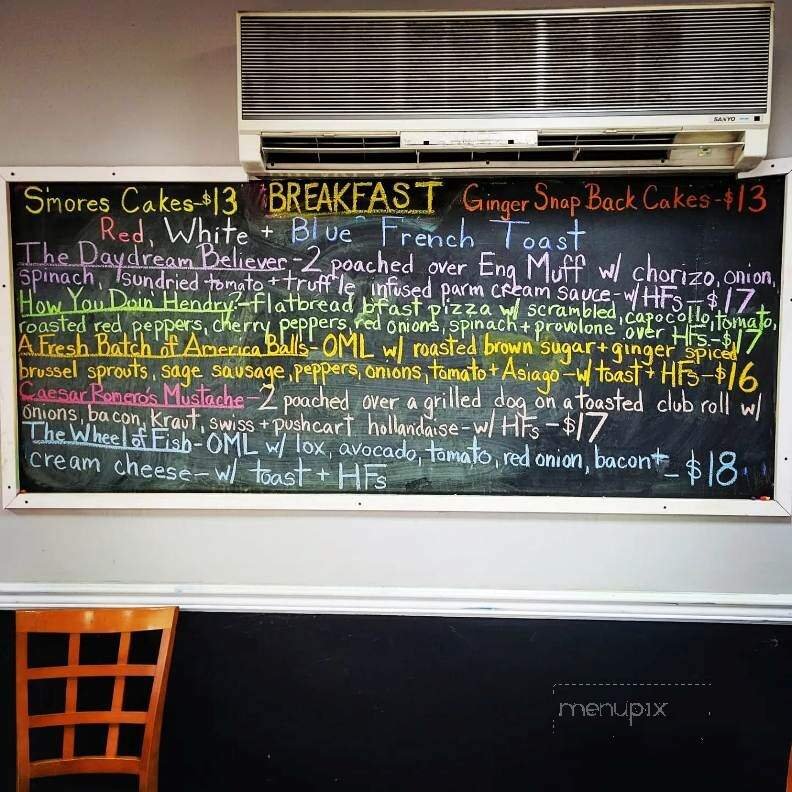 SANYO
S'mores Cakes-$13 BREAKFAST Ginger Snap Back Cakes-$13
Red, White + Blue French Toast
The Daydream Believer-2 poached over Eng Muff w/ chorizo, onion,
spinach, sundried tomato + truffle infused parm cream sauce-w/HFs-$17
How You Doin Hendry?-flatbread bfast pizza w/ scrambled, capocollo, tomato,
roasted red peppers, cherry peppers, red onions, spinach + provolone over HFs-$17
A Fresh Batch of America Balls-OML w/ roasted brown sugar + ginger spiced
brussel sprouts, sage sausage, peppers, onions, tomato + Asiago-w/ toast + HFs-$16
Caesar Romero's Mustache-2 poached over a grilled dog on a toasted club roll w/
onions, bacon, kraut, swiss + pushcart hollandaise-w/ HFs-$17
The Wheel of Fish-OML w/ lox, avocado, tomato, red onion, bacon +
cream cheese-w/ toast + HFs -$18
menupix